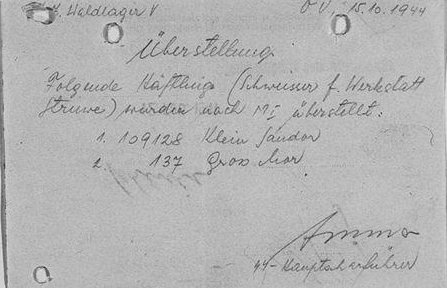 K. Waldlager V O.U., 15.10.1944
Überstellung
Folgende Häftlinge (Schweisser f. Werkstatt
Struwe) wurden nach M I überstellt:
1. 109128 Klein Sándor
2. 137 Gros Mor
SS-Hauptscharführer